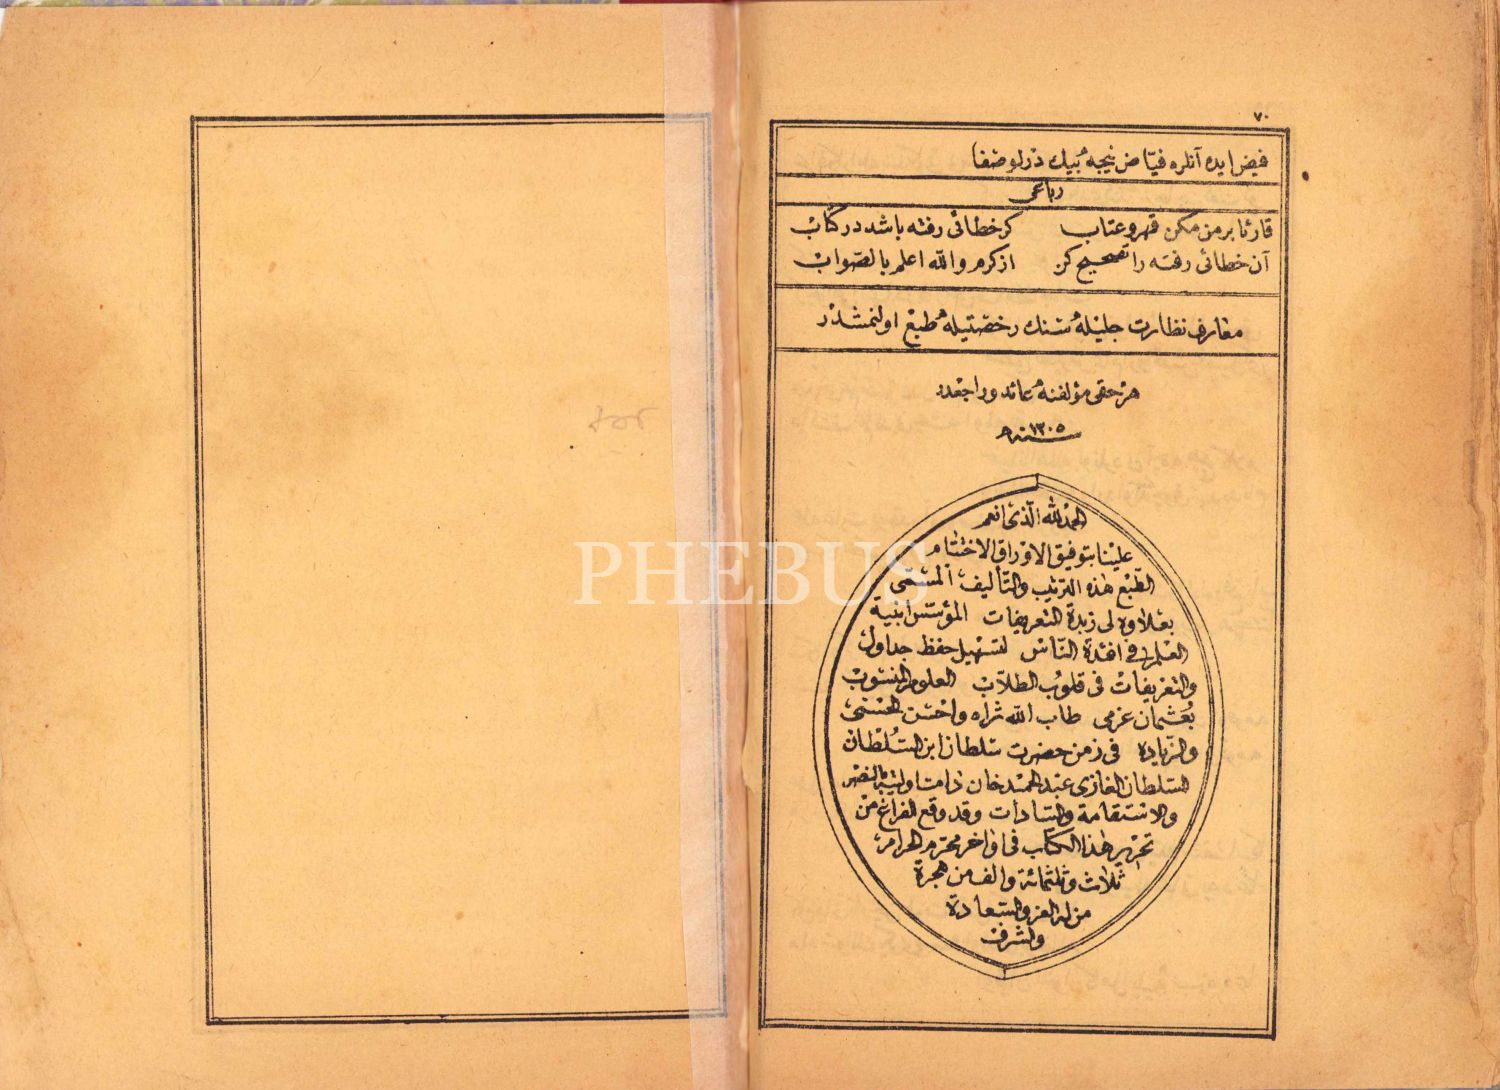 ٧٠
فيض ايده آنلره فيّاض نيجه بيك درلو صفا
رباعى
قارئا بر من مكن قهر و عتاب كر خطائى رفته باشد در كتاب
آن خطائى رفته را تصحيح كن از كرم والله اعلم بالصواب
معارف نظارت جليله سنك رخصتيله طبع اولنمشدر
هر حقى مؤلفنه عائد و راجعدر
سنه ١٣٠٥
الحمد لله الّذى انعم
علينا بتوفيق الاوراق الاختتام
الطّبع هذه الترتيب والتأليف المسمّى
بعلاوه لى زبدة التعريفات المؤسس ابنية
العلم فى افئدة النّاس لتسهيل حفظ جداول
والتعريفات فى قلوب الطلاّب العلوم المنسوب
بعثمان عزمى طاب الله ثراه واحسن الحسنى
والزّياده فى زمن حضرت سلطان ابن السّلطان
السلطان الغازى عبد الحميد خان دامت بالنصر
والاستقامة والسّادات وقد وقع الفراغ من
تحرير هذا الكتاب فى اواخر محرّم الحرام
ثلاث وثلثمائة والف من هجرة
من له العز والسّعادة
والشرف
PHEBUS